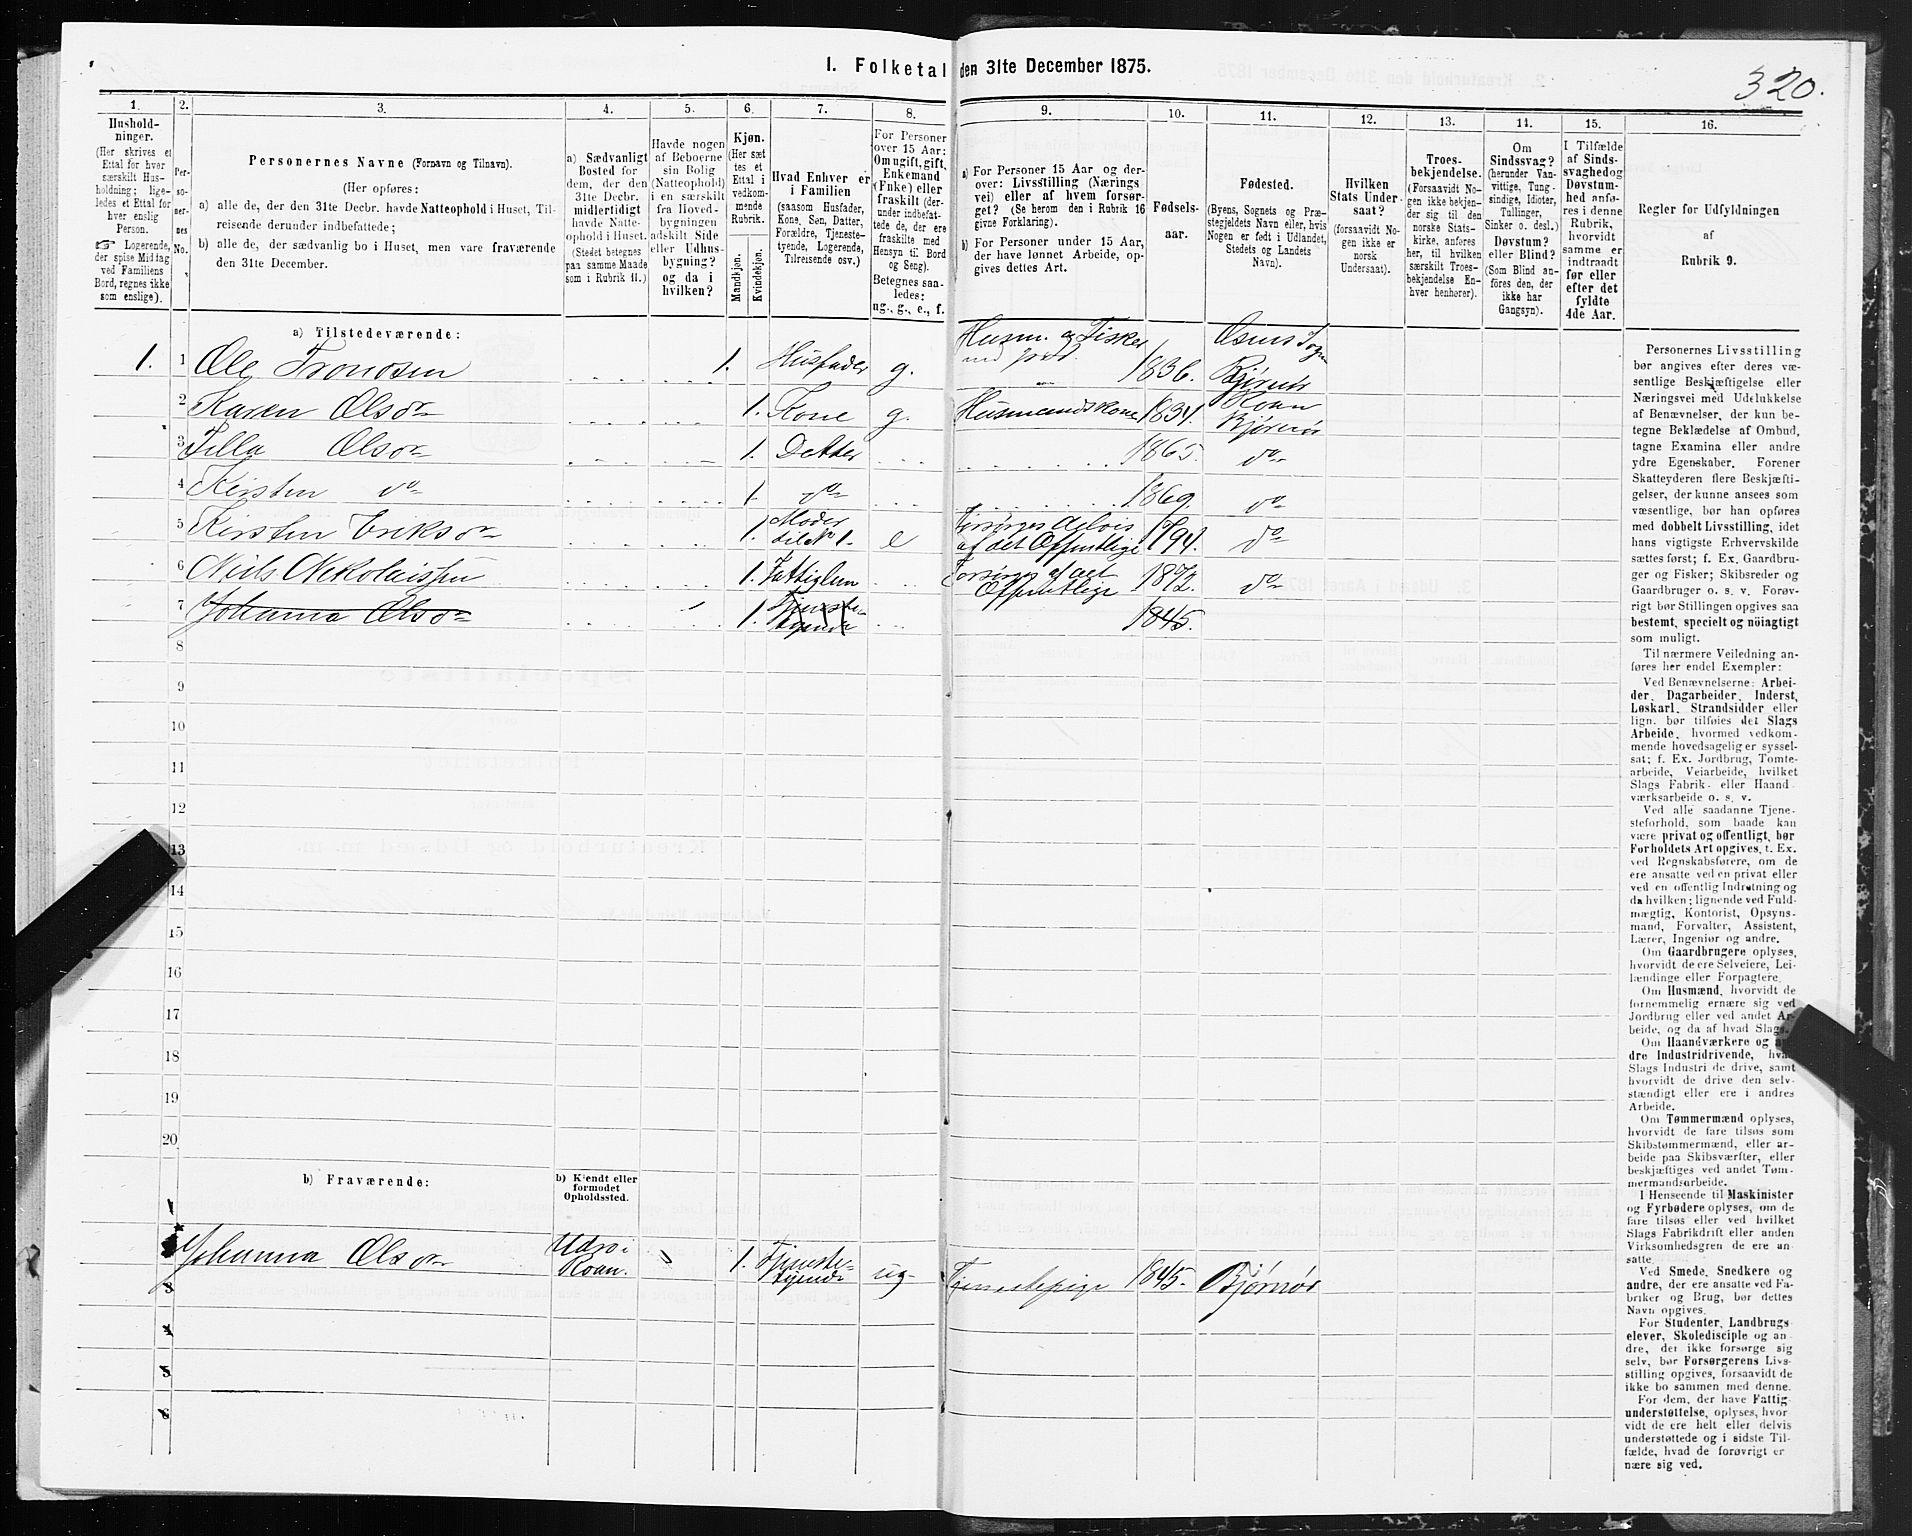 I. Folketal den 31te December 1875.
320.
1.
2.
3.
4.
5.
6.
7.
8.
9.
10.
11.
12.
13.
14.
15.
16.
Hushold-
ninger.
(Her skrives et
Ettal for hver
særskilt Hus-
holdning; lige-
ledes et Ettal for
hver enslig
Person.
☞ Logerende,
der spise Middag
ved Familiens
Bord, regnes ikke
som enslige).
Per-
so-
ner-
nes
No.
Personernes Navne (Fornavn og Tilnavn).
(Her opføres:
a) alle de, der den 31te Decbr. havde Natteophold i Huset, Til-
reisende derunder indbefattede;
b) alle de, der sædvanlig bo i Huset, men vare fraværende
den 31te December.
a) Sædvanligt
Bosted for
dem, der den
31te Decbr.
midlertidigt
havde Natte-
ophold i Huset.
(Stedet betegnes
paa samme Maade
som i Rubrik 11.)
Havde nogen
af Beboerne
sin Bolig
(Natteophold)
i en særskilt
fra Hoved-
bygningen
adskilt Side
eller Udhus-
bygning?
og da i
hvilken?
Kjøn.
(Her sæt
tes et
Ettal i
vedkom-
mende
Rubrik.
Mandkjøn.
Kvindekjøn.
Hvad Enhver er
i Familien
(saasom Husfader,
Kone, Søn, Datter,
Forældre, Tjeneste-
tyende, Logerende,
Tilreisende osv.)
For Personer
over 15 Aar:
Om ugift, gift,
Enkemand
(Enke) eller
fraskilt (der-
under indbefat-
tede de, der ere
fraskilte med
Hensyn til Bord
og Seng).
Betegnes saa-
ledes:
ug., g., e., f.
a) For Personer 15 Aar og der-
over: Livsstilling (Nærings
vei) eller af hvem forsør-
get? (Se herom den i Rubrik 16
givne Forklaring).
b) For Personer under 15 Aar,
der have lønnet Arbeide, op-
gives dettes Art.
Fødsels-
aar.
Fødested.
(Byens, Sognets og Præ-
stegjeldets Navn eller, hvis
Nogen er født i Udlandet,
Stedets og Landets
Navn).
Hvilken
Stats Under-
saat?
(forsaavidt No-
gen ikke er
norsk
Undersaat).
Troes-
bekjendelse.
(Forsaavidt No-
gen ikke bekjen-
der sig til den
norske Stats-
kirke, anføres
her, til hvilken
særskilt Troes-
bekjendelse En-
hver henhører).
Om
Sindssvag?
(herunder Van-
vittige, Tung-
sindige, Idioter,
Tullinger,
Sinker o. desl.)
Døvstum?
eller Blind?
(Som Blind an-
föres den, der
ikke har
Gangsyn).
I Tilfælde
af Sinds-
svaghed og
Døvstum-
hed anfø-
res i denne
Rubrik,
hvorvidt
samme er
indtraadt
før eller
efter det
fyldte
4de Aar.
Regler for Udfyldningen
af
Rubrik 9.
a) Tilstedeværende:
1. 1 Ole Trondsen 1. Husfader g. Husm. og Fisker med Jord 1836. Osens Sogn Bjørnør
2 Karen Olsdr 1. Kone g. Husmandskone 1834. Roan Bjørnør
3 Jella Olsdr 1. Datter 1865. do
4 Kirsten do 1 do 1869. do
5 Kirsten Eriksdr 1. Moder til No 1. e Forsørges delvis af det Offentlige 1794. do
6 Niels Nikolaissen 1. Fattiglem Forsørges af det Offentlige 1872. do
7 Johanna Olsdr 1. Tjenstetyende 1845.
8
9
10
11
12
13
14
15
16
17
18
19
20
b) Fraværende:
b) Kjendt eller
formodet
Opholdssted.
1
Johanna Olsdr Udrø i Roan. 1. Tjenestetyende ug. Tjenestepige 1845. Bjørnør
3
4
5
6
Personernes Livsstilling
bør angives efter deres væ-
sentlige Beskjæftigelse eller
Næringsvei med Udelukkelse
af Benævnelser, der kun be-
tegne Beklædelse af Ombud,
tagne Examina eller andre
ydre Egenskaber. Forener
Skatteyderen flere Beskjæfti-
gelser, der kunne ansees som
væsentlige, bør han opføres
med dobbelt Livsstilling, idet
hans vigtigste Erhvervskilde
sættes først; f. Ex. Gaardbru-
ger og Fisker; Skibsreder og
Gaardbruger o. s. v. Forøv-
rigt bør Stillingen opgives saa
bestemt, specielt og nöiagtigt
som muligt.
Til nærmere Veiledning an-
føres her endel Exempler:
Ved Benævnelserne: Arbei-
der, Dagarbeider, Inderst,
Løskarl, Strandsidder eller
lign. bør tilføies det Slags
Arbeide, hvormed vedkom-
mende hovedsagelig er syssel-
sat; f. Ex. Jordbrug, Tomte-
arbeide, Veiarbeide, hvilket
Slags Fabrik- eller Haand
værksarbeide o. s. v.
Ved alle saadanne Tjene-
steforhold, som baade kan
være privat og offentligt, bør
Forholdets Art opgives, t. Ex.
ved Regnskabsførere, om de
ere ansatte ved en privat eller
ved en offentlig Indretning og
da hvilken; lignende ved Fuld-
mægtig, Kontorist, Opsyns-
mand, Forvalter, Assistent,
Lærer, Ingeniør og andre.
Om Gaardbrugere oplyses,
hvorvidt de ere Selveiere, Lei-
lændinge eller Forpagtere.
Om Husmænd, hvorvidt de
fornemmelig ernære sig ved
Jordbrug eller ved andet Ar-
beide, og da af hvad Slags.
Om Haandværkere og an-
dre Industridrivende, hvad
Slags Industri de drive, samt
hvorvidt de drive den selv-
stændigt eller ere i andres
Arbeide.
Om Tømmermænd oplyses,
hvorvidt de fare tilsøs som
Skibstømmermænd, eller ar-
beide paa Skibsværfter, eller
beskjæftiges ved andet Tøm-
mermandsarbeide.
I Henseende til Maskinister
og Fyrbødere oplyses, om de
fare tilsøs eller ved hvilket
Slags Fabrikdrift eller anden
Virksomhedsgren de ere an-
satte.
Ved Smede, Snedkere og
andre, der ere ansatte ved Fa-
briker og Brug, bør dettes
Navn opgives.
For Studenter, Landbrugs-
elever, Skoledisciple og an-
dre, der ikke forsørge sig
selv, bør Forsørgerens Livs-
stilling opgives, forsaavidt de
ikke bo sammen med denne.
For dem, der have Fattig-
understøttelse, oplyses, hvor
vidt de ere helt eller delvis
understøttede og i sidste Til-
fælde, hvad de forøvrigt er
nære sig ved.